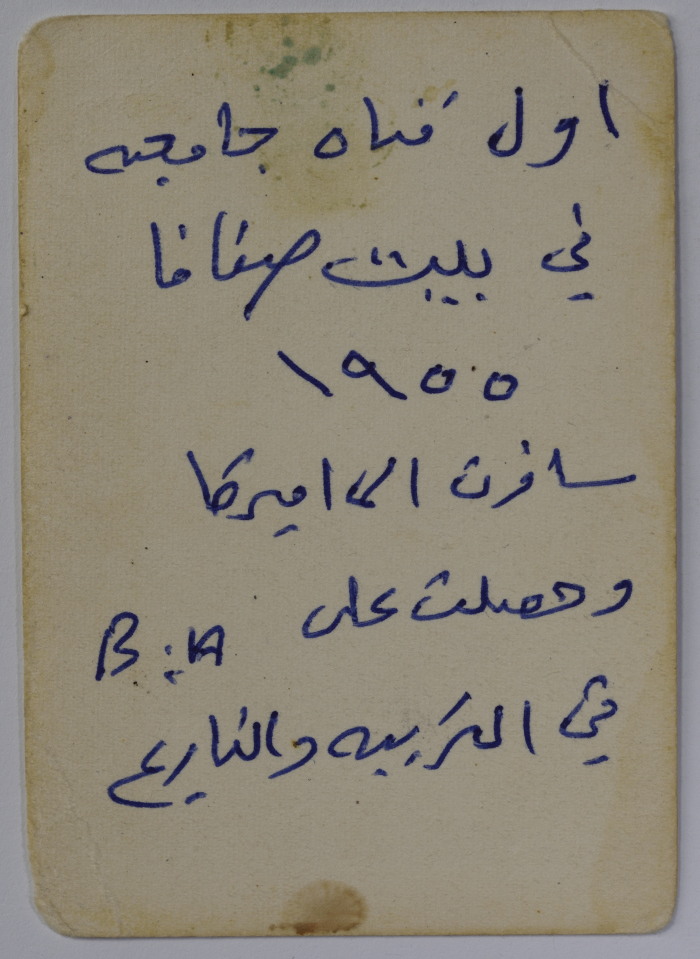 اول فتاه جامعيه
في بيت صفافا
١٩٥٥
سافرت الى اميركا
وحصلت على B.A
في التربيه والتاريخ